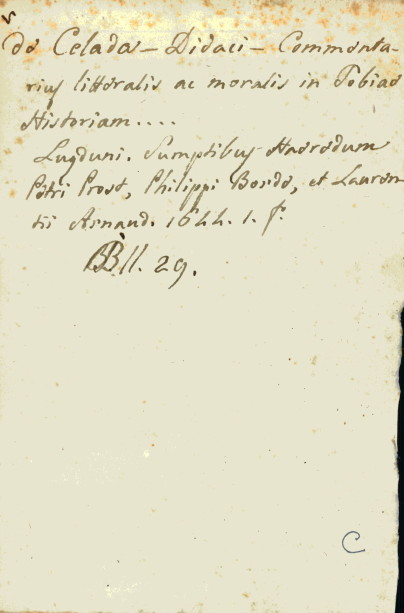 de Celada - Didaci - Commenta-
rius litteralis ac moralis in Tobiae
Historiam....
Lugduni. Sumptibus Haeredum
Petri Prost, Philippi Borde, et Lauren
tii Arnaud. 1644. 1. f.
BB 11. 29.
C